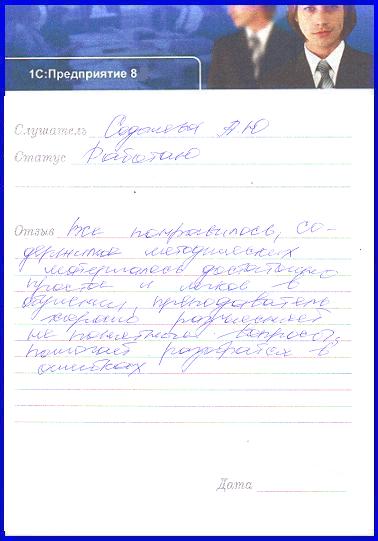 1С:Предприятие 8
Слушатель А Ю
Статус Работаю
Отзыв Все понравилось, со-
держание методических
материалов достаточно
простое и легкое в
обучении, преподаватель
хорошо разъясняет
не понятные вопросы,
помогает разобраться в
ошибках
Дата